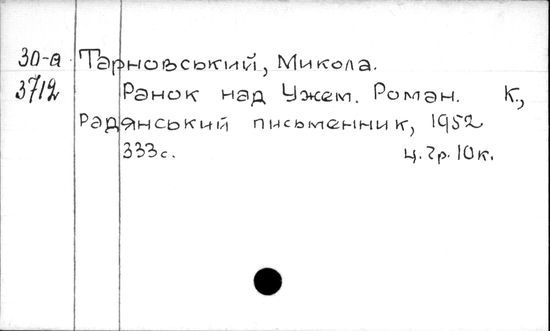 30-а Тарновський, Микола.
3712 Ранок над Ужем. Роман. К.,
Радянський письменник, 1952
333с. ц. 7р. 10к.